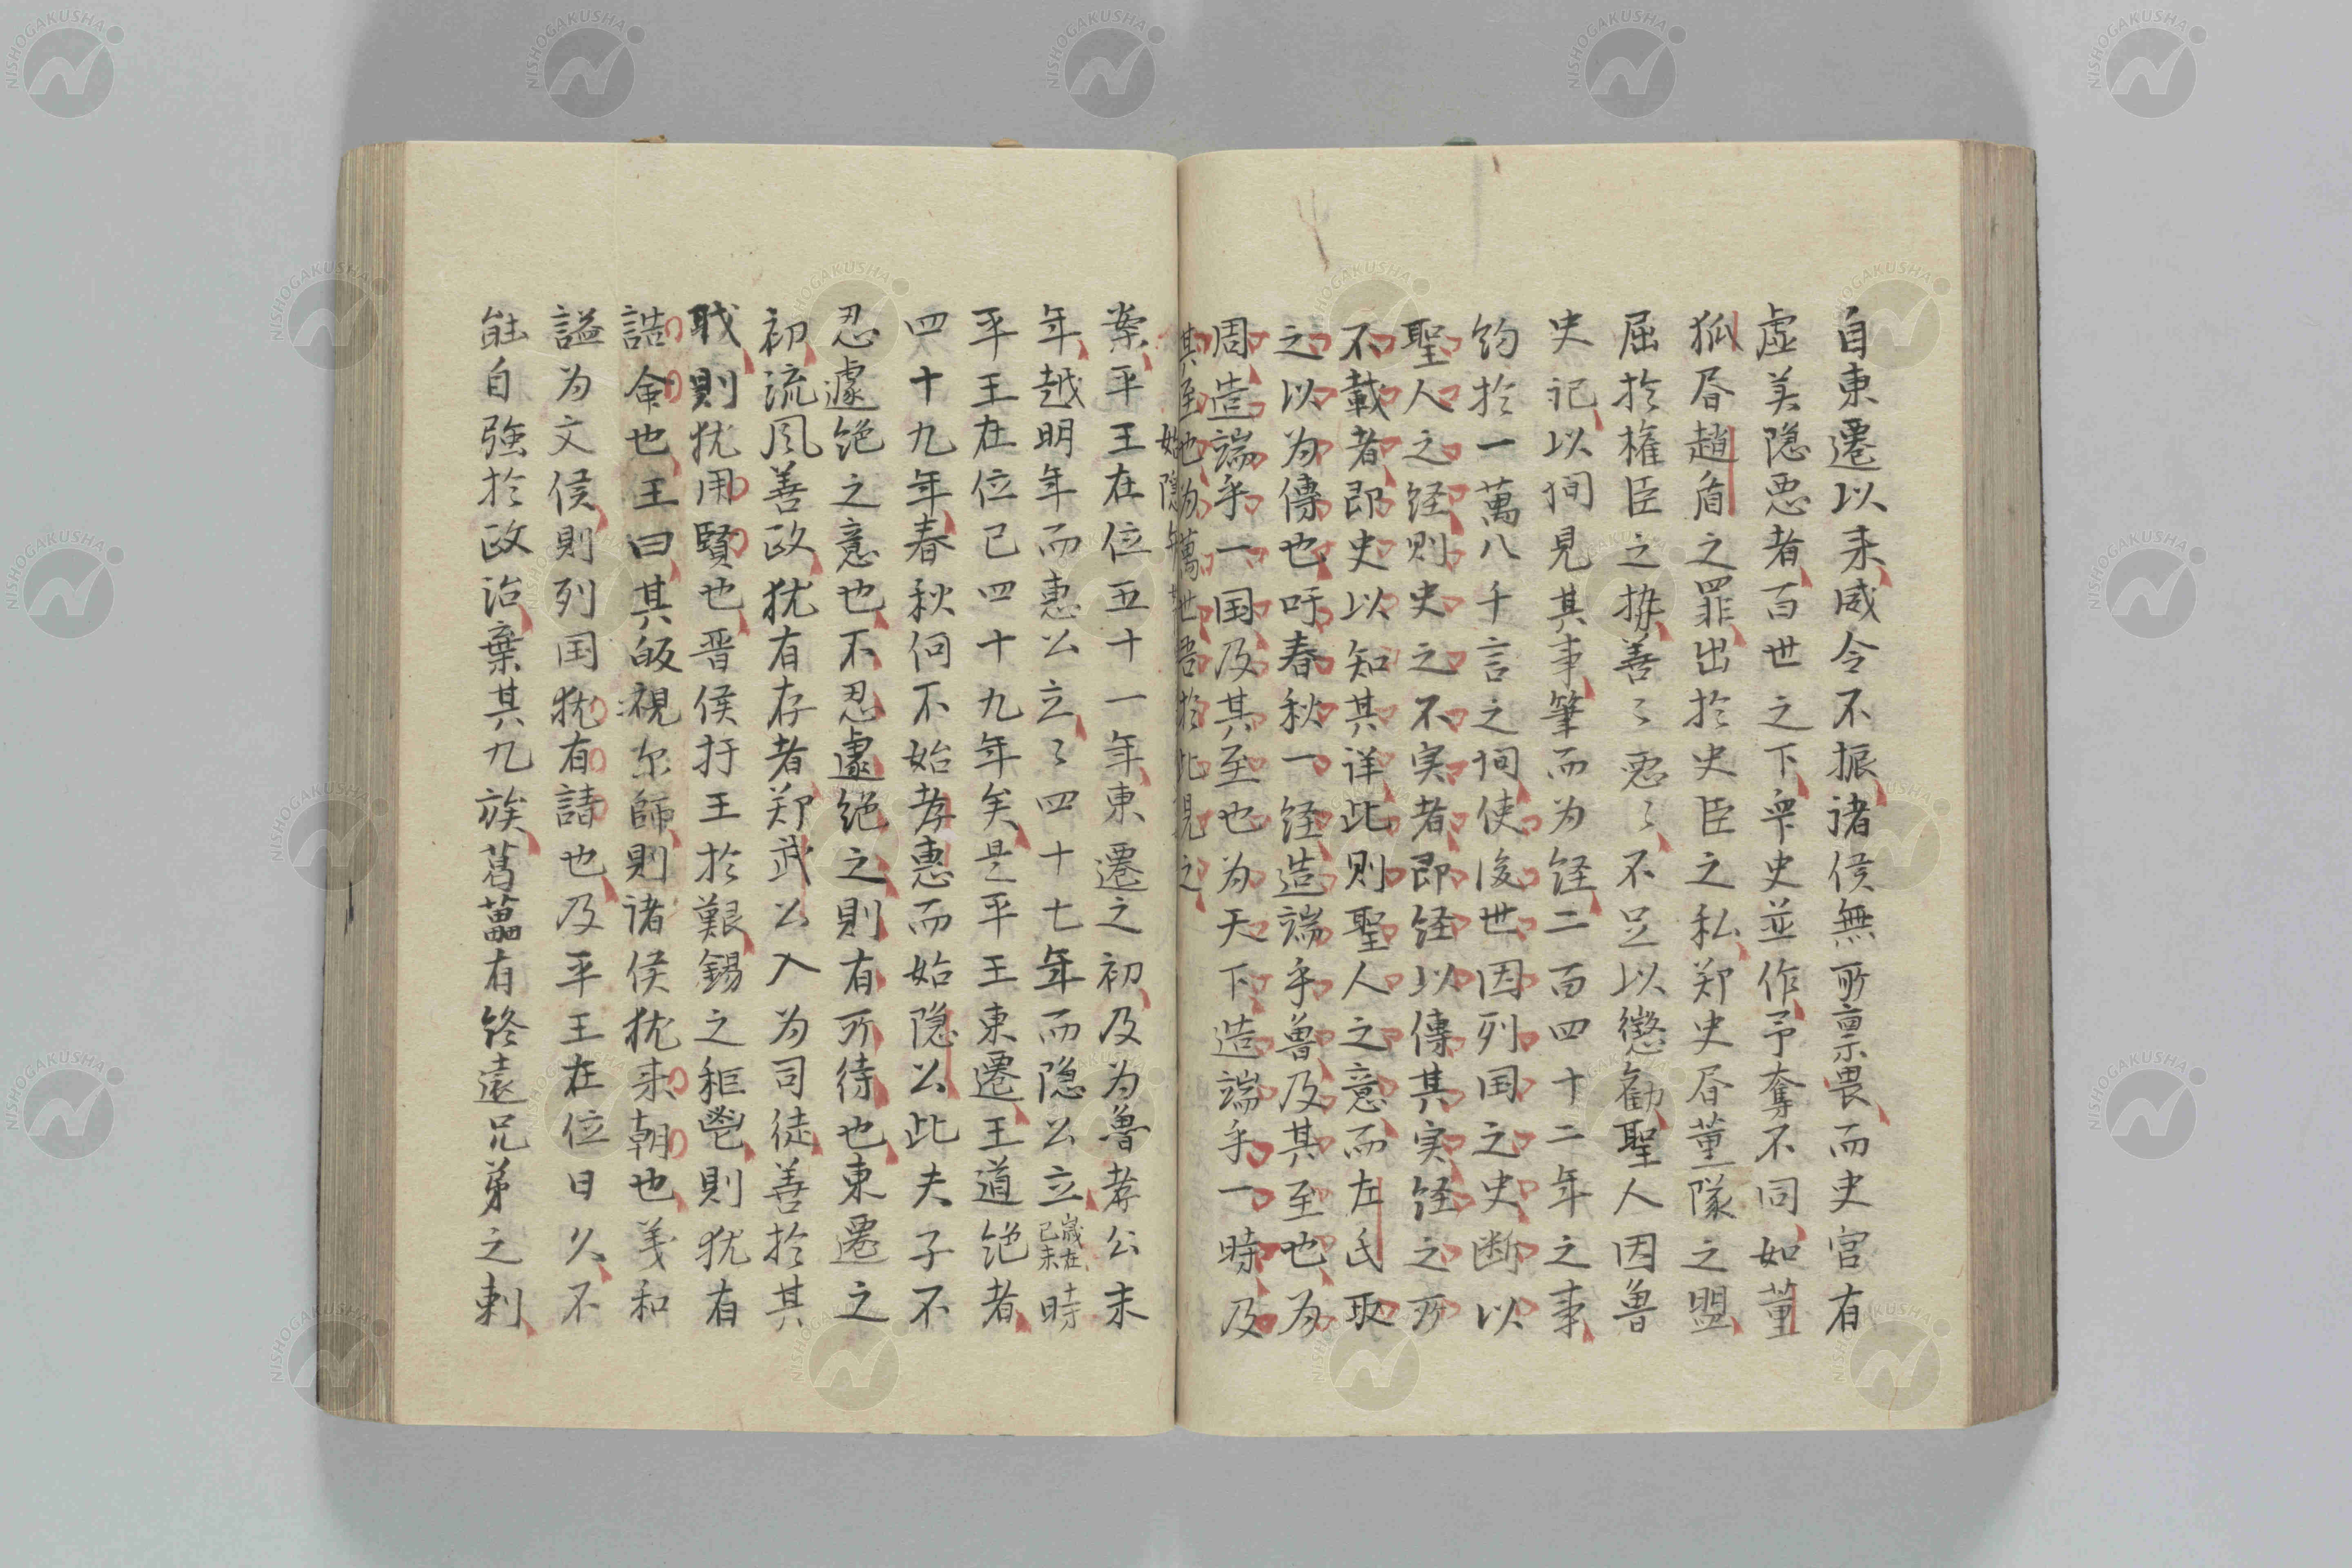 自東遷以来威令不振諸侯無所禀畏而史官有
虚美隠悪者百世之下衆史並作予奪不同如董
狐昏趙盾之罪出於史臣之私郑史昏董隊之盟
屈於権臣之势善〻悪〻不足以懲勧聖人因魯
史記以间見其事筆而为経二百四十二年之事
约於一萬八千言之间使後世因列国之史断以
聖人之経則史之不実者即経以傳其実経之所
不載者即史以知其详此則聖人之意而左氏取
之以为傳也吁春秋一経造端乎魯及其至也为
周造端乎一国及其至也为天下造端乎一時及
其至也为萬世吾於此見之
始隠年
案平王在位五十一年東遷之初及为魯孝公末
年越明年而惠公立〻四十七年而隠公立歳在己未時
平王在位已四十九年矣是平王東遷王道绝者
四十九年春秋何不始孝惠而始隠公此夫子不
忍遽绝之意也不忍遽绝之則有所待也東遷之
初流风善政犹有存者郑武公入为司徒善於其
职則犹用賢也晋侯扞王於艱錫之秬鬯則犹有
誥命也王曰其皈視尔師則诸侯犹来朝也義和
謚为文侯則列国犹有請也及平王在位日久不
能自強於政治棄其九族葛藟有终遠兄弟之刺